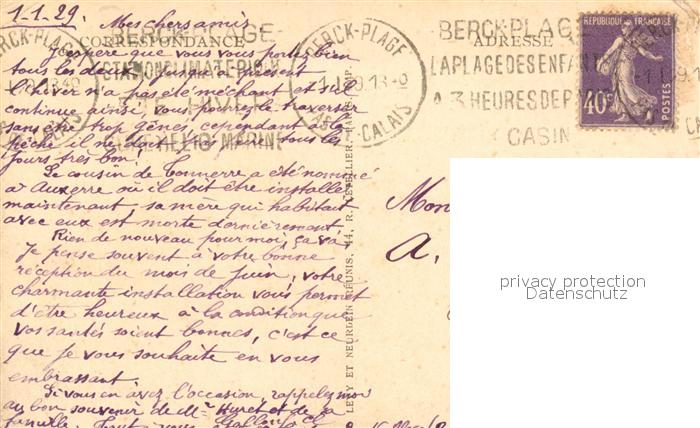 1-1-29. Mes chers amis
CORRESPONDANCE
J'espère que vous vous portez bien
tous les deux, jusqu'à présent
l'hiver n'a pas été méchant et s'il
continue ainsi, vous pourrez le traverser
sans être trop gênés, cependant à la
pêche il ne doit pas faire tous les
jours très bon!
Le cousin de Tonnerre a été nommé
à Auxerre où il doit être installé
maintenant, sa mère qui habitait
avec eux est morte dernièrement
Rien de nouveau pour moi, ça va
je pense souvent à votre bonne
réception du mois de Juin, votre
charmante installation vous permet
d'être heureux à la condition que
vos santés soient bonnes, c'est ce
que je vous souhaite en vous
embrassant
Si vous en avez l'occasion, rappelez moi
au bon souvenir de Mr Huret et de sa
famille
BERCK-PLAGE
STATION CLIMATERIQUE
BERCK-PLAGE
PAS-DE-CALAIS
ADRESSE
BERCK-PLAGE
LA PLAGE DES ENFANTS
A 3 HEURES DE PARIS
CASINO
REPUBLIQUE FRANÇAISE
40c
POSTES
LEVY ET NEURDEIN REUNIS, 44, R. LETELLIER
A.
privacy protection
Datenschutz